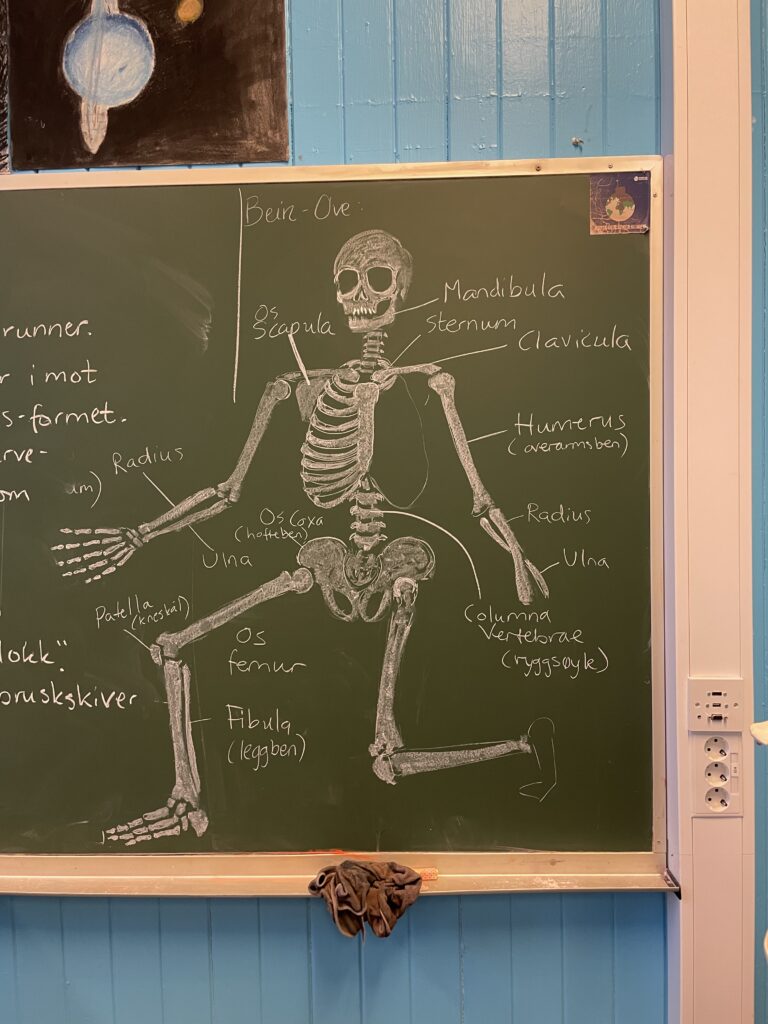 Bein-Ove:
runner.
r imot
s-formet.
rve-
om um)
lokk".
bruskskiver
Mandibula
Os
Scapula
Sternum
Clavicula
Humerus
(overarmsben)
Radius
Ulna
Os Coxa
(hofteben)
Radius
Ulna
Columna
Vertebrae
(ryggsøyle)
Patella
(kneskål)
Os
femur
Fibula
(leggben)